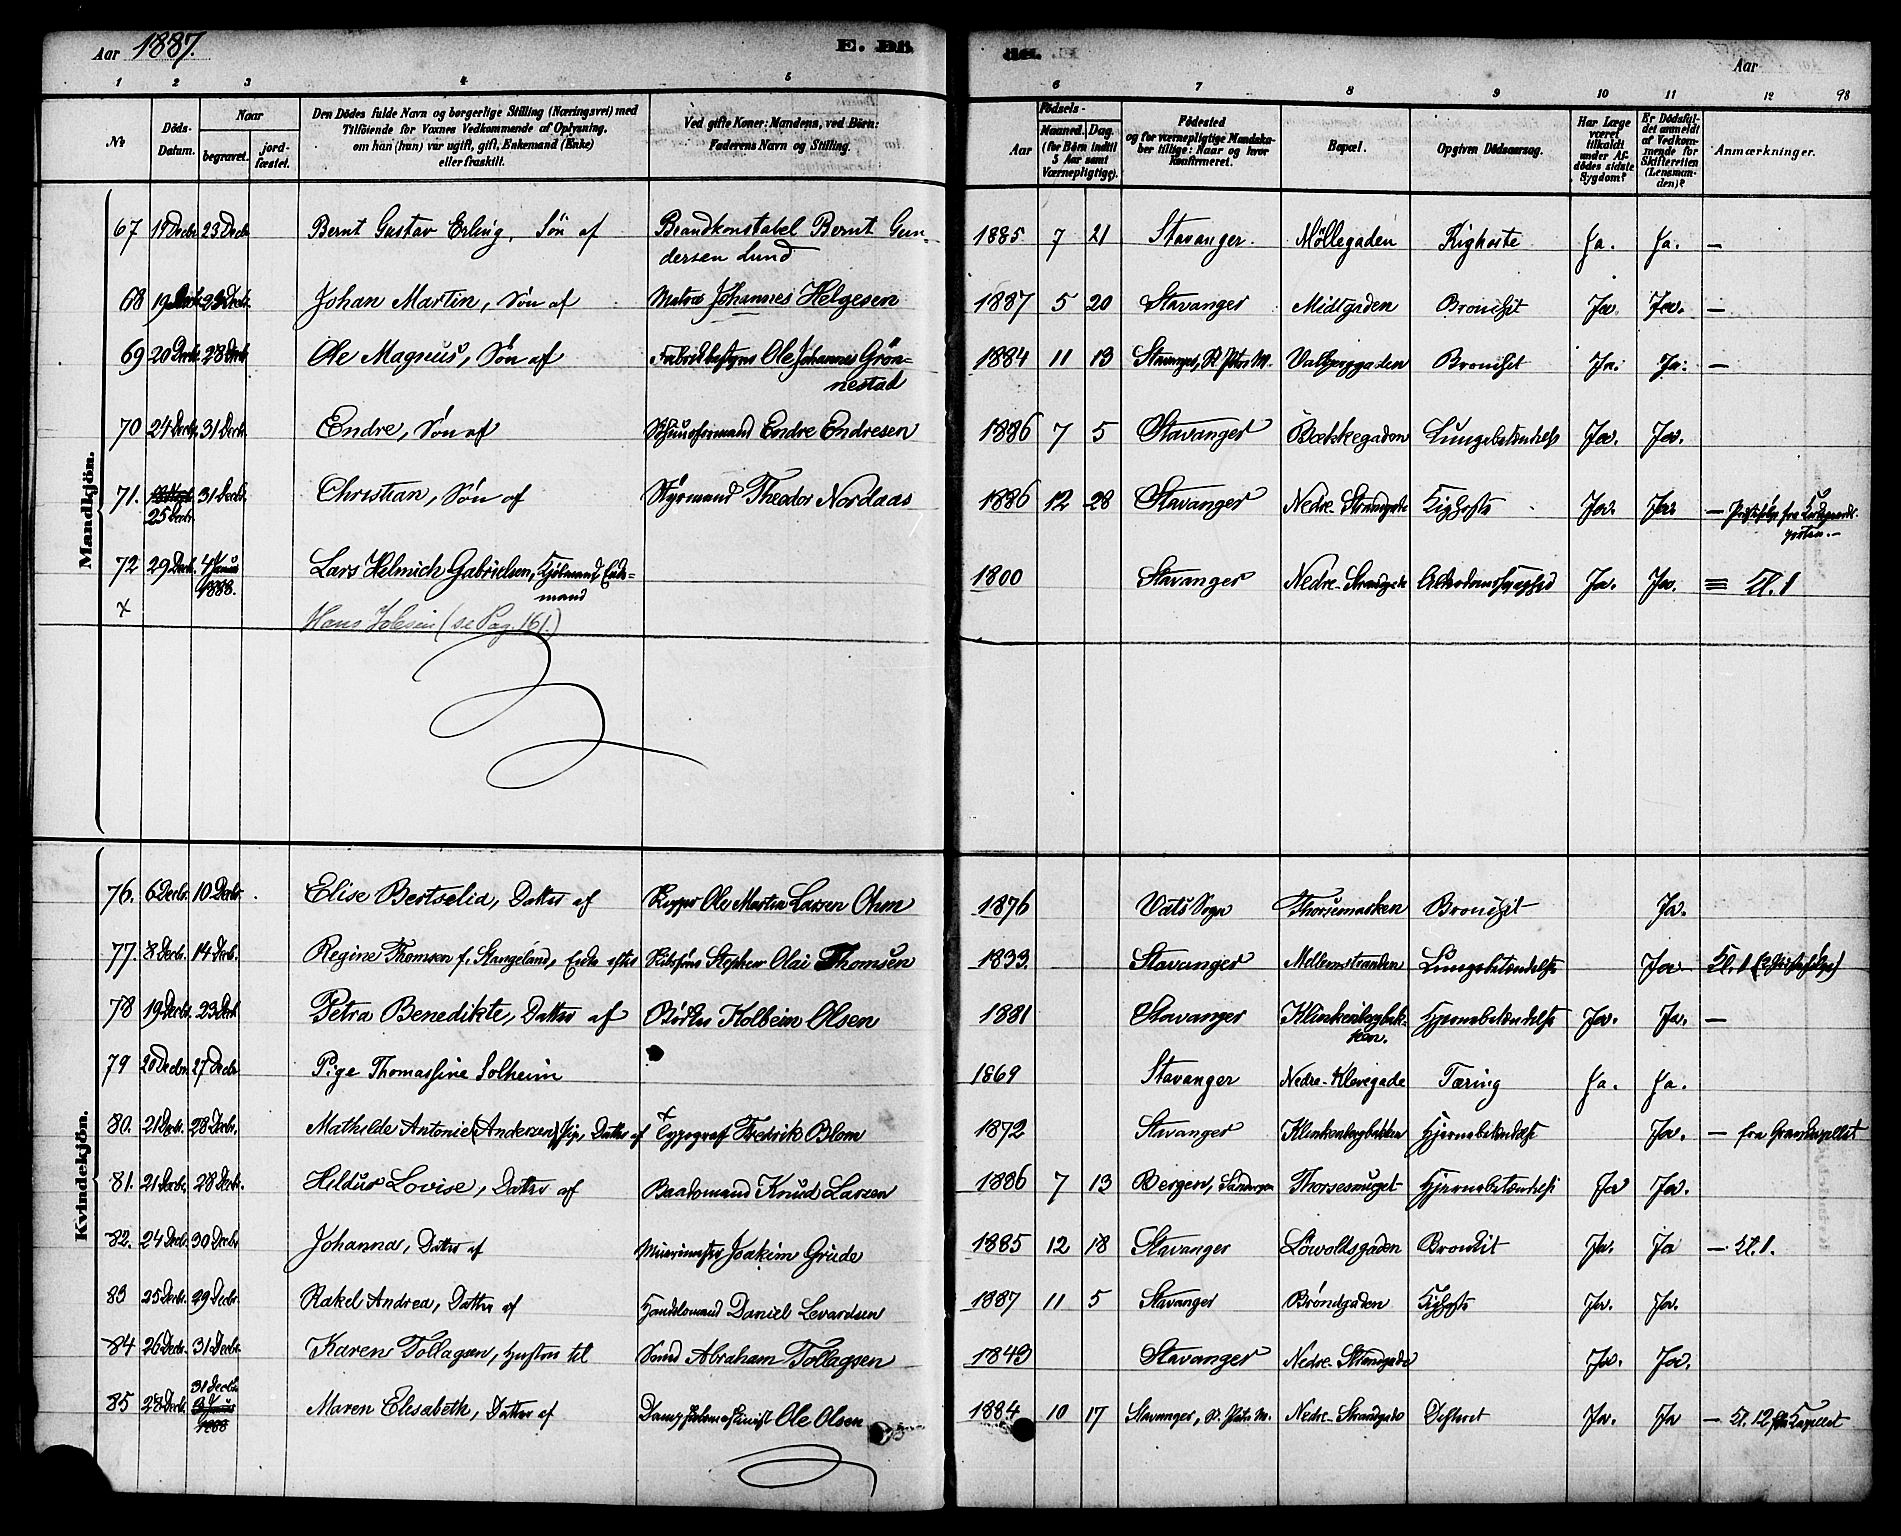 Aar 1887.
E. Dö-
1 2 3 4 5
No
Döds-Datum.
Naar
begravet. jord-fæstet.
Den Dödes fulde Navn og borgerlige Stilling (Næringsvei) med
Tilföiende for Voxnes Vedkommende af Oplysning,
om han (hun) var ugift, gift, Enkemand (Enke)
eller fraskilt.
Ved gifte Koner: Mandens, ved Börn:
Faderens Navn og Stilling.
Mandkjön.
67 19 Decbr. 23 Decbr. Bernt Gustav Erling, Sön af Brandkonstabel Bernt Gun-
dersen Lund
68 19 Decbr. 23 Decbr. Johan Martin, Sön af Matros Johannes Helgesen
69 20 Decbr. 28 Decbr. Ole Magnus, Sön af Ole Johannes Grön-
nestad
70 24 Decbr. 31 Decbr. Endre, Sön af Endre Endresen
71. 25 Decbr. 31 Decbr. Christian, Sön af Styrmand Theodor Nordaas
72 29 Decbr. 4 Janu. 1888. Lars Helmich Gabrielsen, Enke-
mand
x Hans (se Pag. 161.)
Kvindekjön.
76. 6 Decbr. 10 Decbr. Elise Bertselia, Datter af Skipper Ole Martin Larsen Ohm
77. 8 Decbr. 14 Decbr. Regine Thomsen f. Stangeland, Enke efter Stephen Olai Thomsen
78 19 Decbr. 23 Decbr. Petra Benedikte, Datter af Bödker Kolbein Olsen
79 20 Decbr. 27 Decbr. Pige Thomassine Solheim
80. 21 Decbr. 28 Decbr. Mathilde Antonie (Andersen) Datter af Typograf Fredrik Blom
81. 21 Decbr. 28 Decbr. Lovise, Datter af Baadsmand Knud Larsen
82. 24 Decbr. 30 Decbr. Johanna, Datter af Murermester Joakim Grude
83 25 Decbr. 29 Decbr. Rakel Andrea, Datter af Handelsmand Daniel Levardsen
84 26 Decbr. 31 Decbr. Karen Tollagsen, Hustru til Smed Abraham Tollagsen
85 28 Decbr. 31 Decbr. Maren Elisabeth, Datter af Ole Olsen
de.
Aar
6 7 8 9 10 11 12 98
Aar
Födsels-
Maaned. Dag.
(for Börn indtil
5 Aar samt
Værnepligtige).
Födested
og for værnepligtige Mandska-
ber tillige: Naar og hvor
konfirmeret.
Bopæl.
Opgiven Dödsaarsag.
Har Læge
været
tilkaldt
under Af-
dödes sidste
Sygdom?
Er Dödsfal-
det anmeldt
af Vedkom-
mende for
Skifteretten
(Lensman-
den)?
Anmærkninger.
1885 7 21 Stavanger. Möllegaden Kighoste Ja. Ja. —
1887 5 20 Stavanger Midtgaden Bronchit Ja. Ja. —
1884 11 13 Stavanger, St. Petri M. Valberggaden Bronchit Ja. Ja. —
1886 7 5 Stavanger Bakkegaden Lungebetændelse Ja. Ja.
1886 12 28 Stavanger Nedre Strandgade Kighoste Ja. Ja. —
1800 Stavanger Nedre Strandgade Alderdomssvaghed Ja. Ja. Kl. 1
1876 Vats Sogn Bronchit Ja.
1833. Stavanger Mellemstranden Lungebetændelse Ja Kl. 1
1881 Stavanger Klinkenbergbak-
ken. Hjernebetændelse Ja. Ja. —
1869 Stavanger Nedre Klevegade Tæring Ja. Ja.
1872 Stavanger Klinkenbergbakken Hjernebetændelse Ja. — fra Gravkapellet
1886 7 13 Bergen, Hjernebetændelse Ja Ja.
1885 12 18 Stavanger Lövoldsgaden Bronchit Ja. Ja — Kl. 1.
1887 11 5 Stavanger Bröndgaden Kighoste Ja. Ja.
1843 Stavanger Nedre Strandgade Ja. Ja.
1884 10 17 Stavanger, St. Petri M. Nedre Strandgade Difterit Ja. Ja — Kl. 12 fra Kapellet